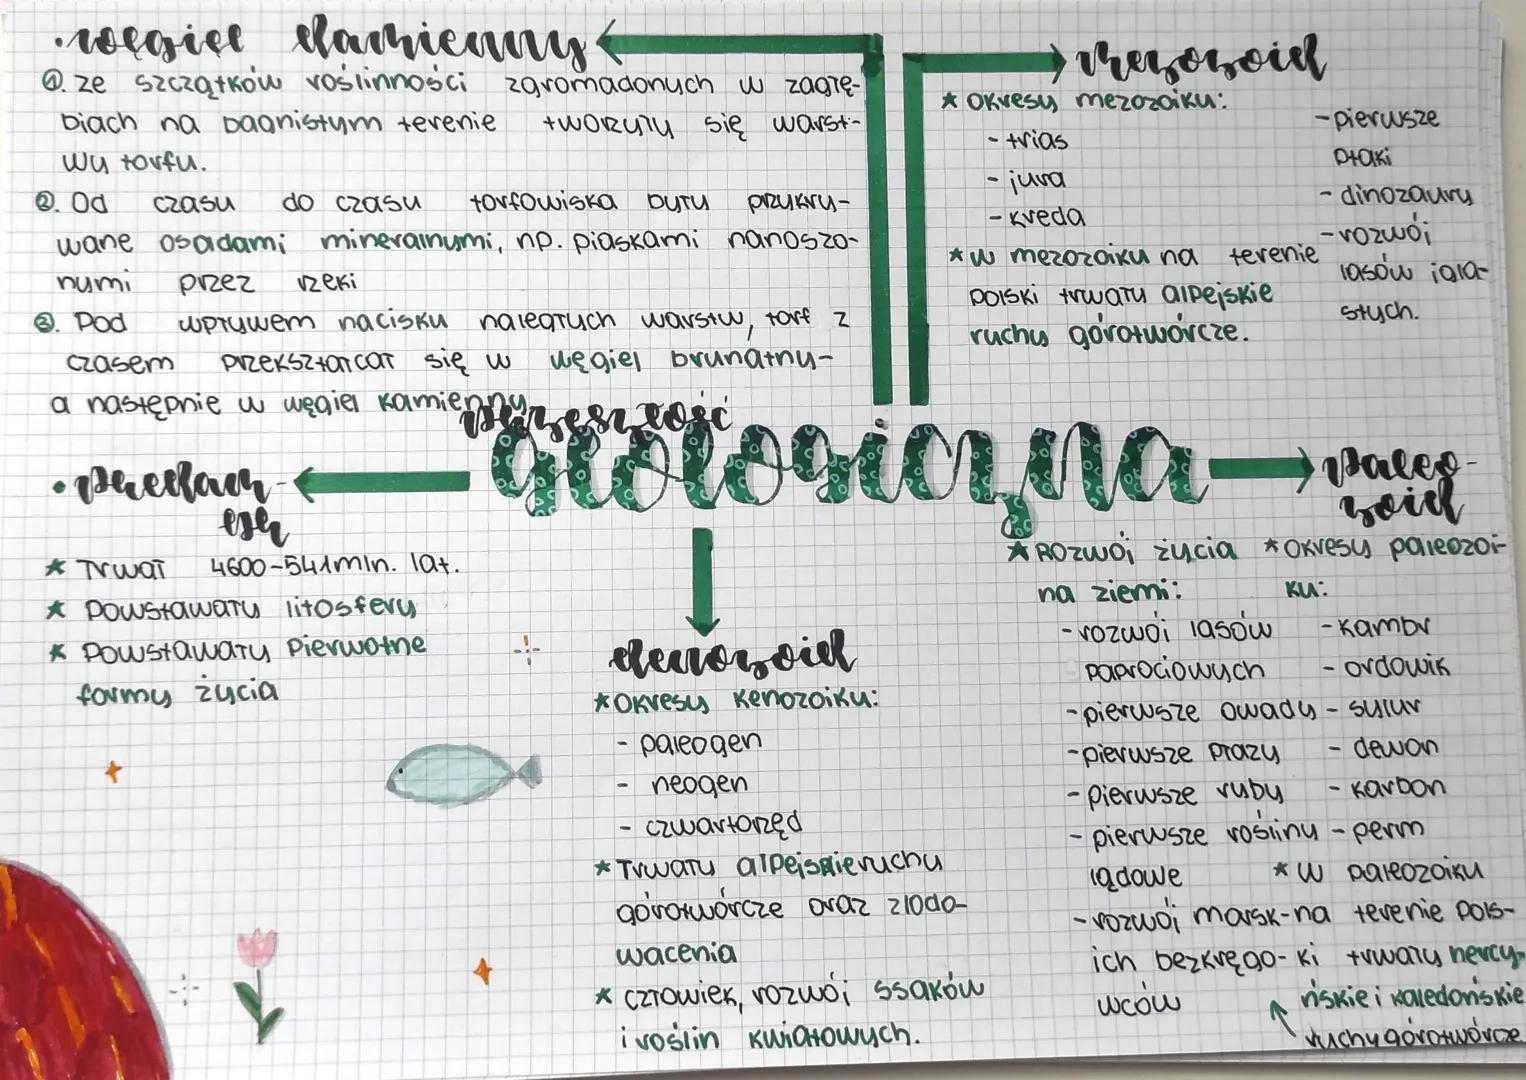 • węgiel kamienny
①. ze szczątków roślinności zgromadonych w zagłę-
biach na bagnistym terenie tworzyły się warst-
wy torfu.
②. Od czasu do czasu torfowiska były przykry-
wane osadami mineralnymi, np. piaskami nanoszo-
nymi przez rzeki
③. Pod wpływem nacisku naległych warstw, torf z
czasem przekształcał się w węgiel brunatny-
a następnie w węgiel kamienny
mezozoik
* Okresy mezozoiku:
- trias
- jura
- kreda
* w mezozoiku na terenie
polski trwały alpejskie
ruchy górotwórcze.
- pierwsze
ptaki
- dinozaury
- rozwój
lasów igla-
stych.
przeszłość
geologiczna
• prekam-
br
* Trwał 4600-541mln. lat.
* Powstawały litosfery
* Powstawały pierwotne
formy życia
kenozoik
* Okresy kenozoiku:
- paleogen
- neogen
- czwartorzęd
* Trwały alpejskie ruchy
górotwórcze oraz zlodo-
wacenia
* człowiek, rozwój ssaków
i roślin kwiatowych.
paleo-
zoik
* Rozwój życia
na ziemi:
- rozwój lasów
paprociowych
- pierwsze owady
- pierwsze płazy
- pierwsze ryby
- pierwsze rośliny
lądowe
- rozwój morsk-
ich bezkręgo-
wców
* Okresy paleozoi-
ku:
- kambr
- ordowik
- sylur
- dewon
- karbon
- perm
* w paleozoiku
na terenie pols-
ki trwały hercy-
ńskie i kaledońskie
ruchy górotwórcze